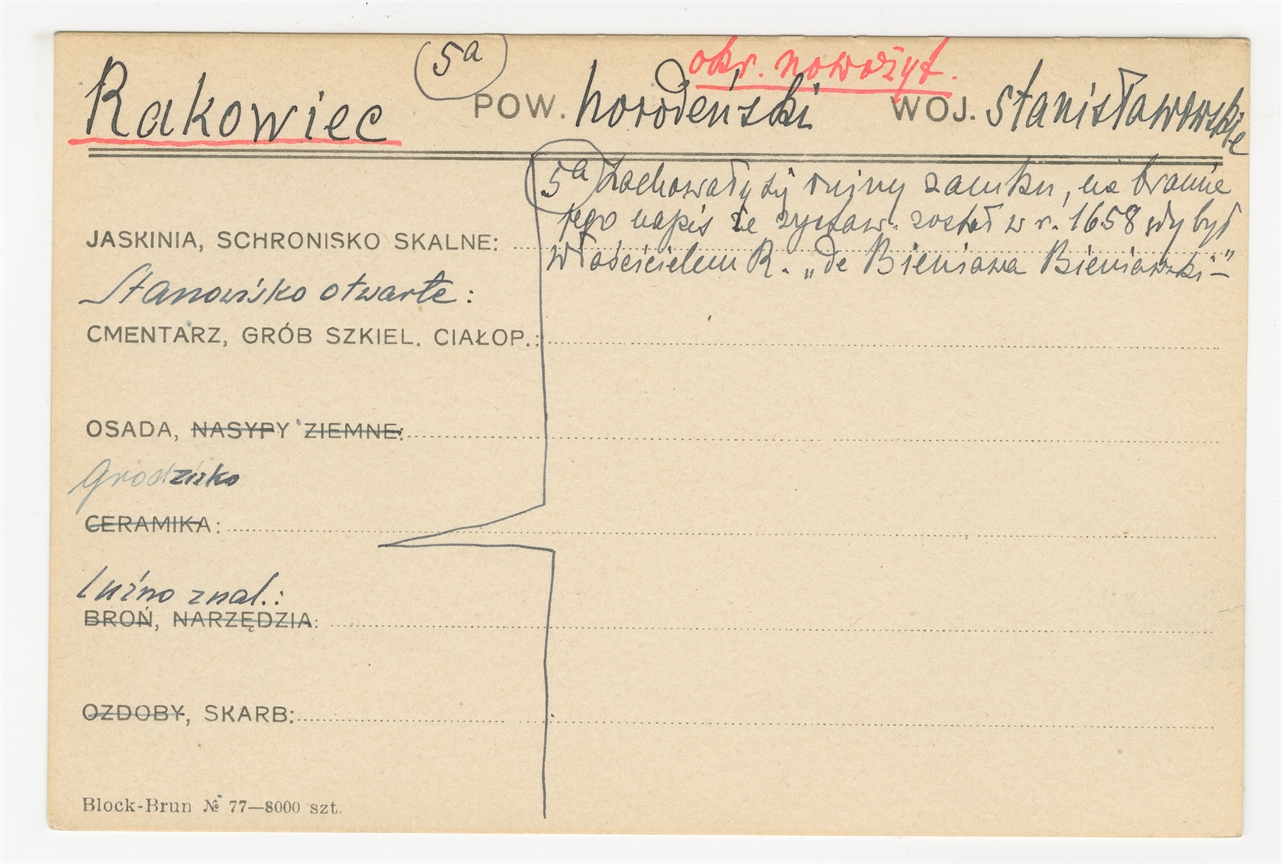 5a okr. nowożyt.
Rakowiec POW. horodeński WOJ. stanisławowskie
5a Zachowały się ruiny zamku, na bramie
jego napis że zystaw. został w r. 1658 gdy był
właścicielem R. „de Bieniawa Bieniawski–"
JASKINIA, SCHRONISKO SKALNE:
Stanowisko otwarte:
CMENTARZ, GRÓB SZKIEL. CIAŁOP.:
OSADA, NASYPY ZIEMNE:
Grodzisko
CERAMIKA:
Luźno znal.:
BROŃ, NARZĘDZIA:
OZDOBY, SKARB:
Block-Brun № 77—8000 szt.